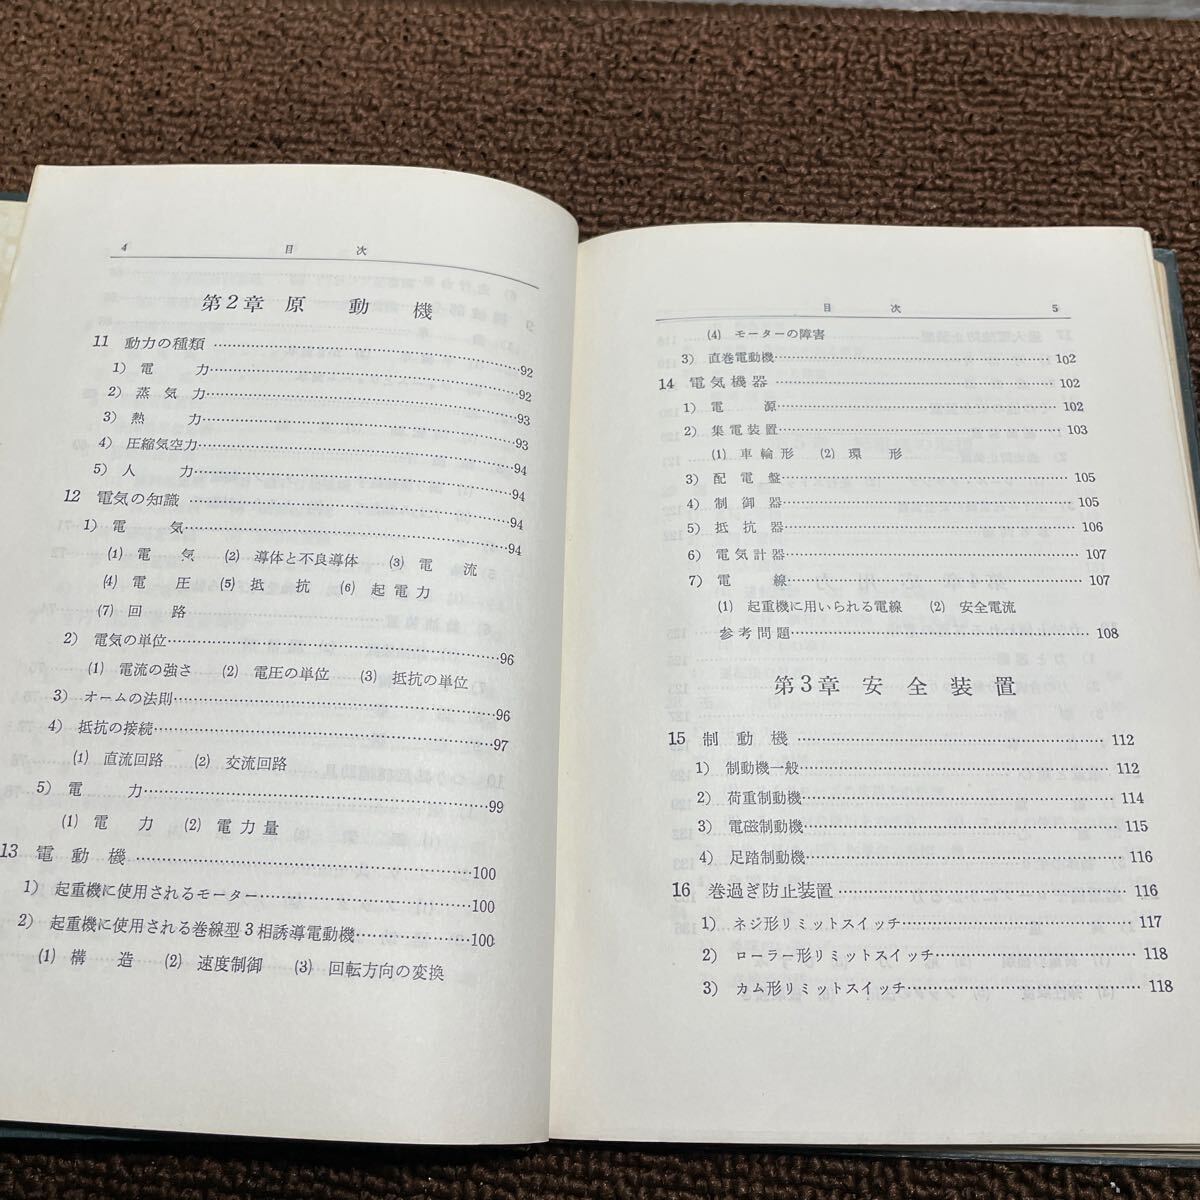 4 目次
第2章 原動機
11 動力の種類……92
1) 電力……92
2) 蒸気力……93
3) 熱力……93
4) 圧縮気空力……94
5) 人力……94
12 電気の知識……94
1) 電気……94
(1) 電気 (2) 導体と不良導体 (3) 電流
(4) 電圧 (5) 抵抗 (6) 起電力
(7) 回路
2) 電気の単位……96
(1) 電流の強さ (2) 電圧の単位 (3) 抵抗の単位
3) オームの法則……96
4) 抵抗の接続……97
(1) 直流回路 (2) 交流回路
5) 電力……99
(1) 電力 (2) 電力量
13 電動機……100
1) 起重機に使用されるモーター……100
2) 起重機に使用される巻線型3相誘導電動機……100
(1) 構造 (2) 速度制御 (3) 回転方向の変換
目次 5
(4) モーターの障害
3) 直巻電動機……102
14 電気機器……102
1) 電源……102
2) 集電装置……103
(1) 車輪形 (2) 環形
3) 配電盤……105
4) 制御器……105
5) 抵抗器……106
6) 電気計器……107
7) 電線……107
(1) 起重機に用いられる電線 (2) 安全電流
参考問題……108
第3章 安全装置
15 制動機……112
1) 制動機一般……112
2) 荷重制動機……114
3) 電磁制動機……115
4) 足踏制動機……116
16 巻過ぎ防止装置……116
1) ネジ形リミットスイッチ……117
2) ローラー形リミットスイッチ……118
3) カム形リミットスイッチ……118